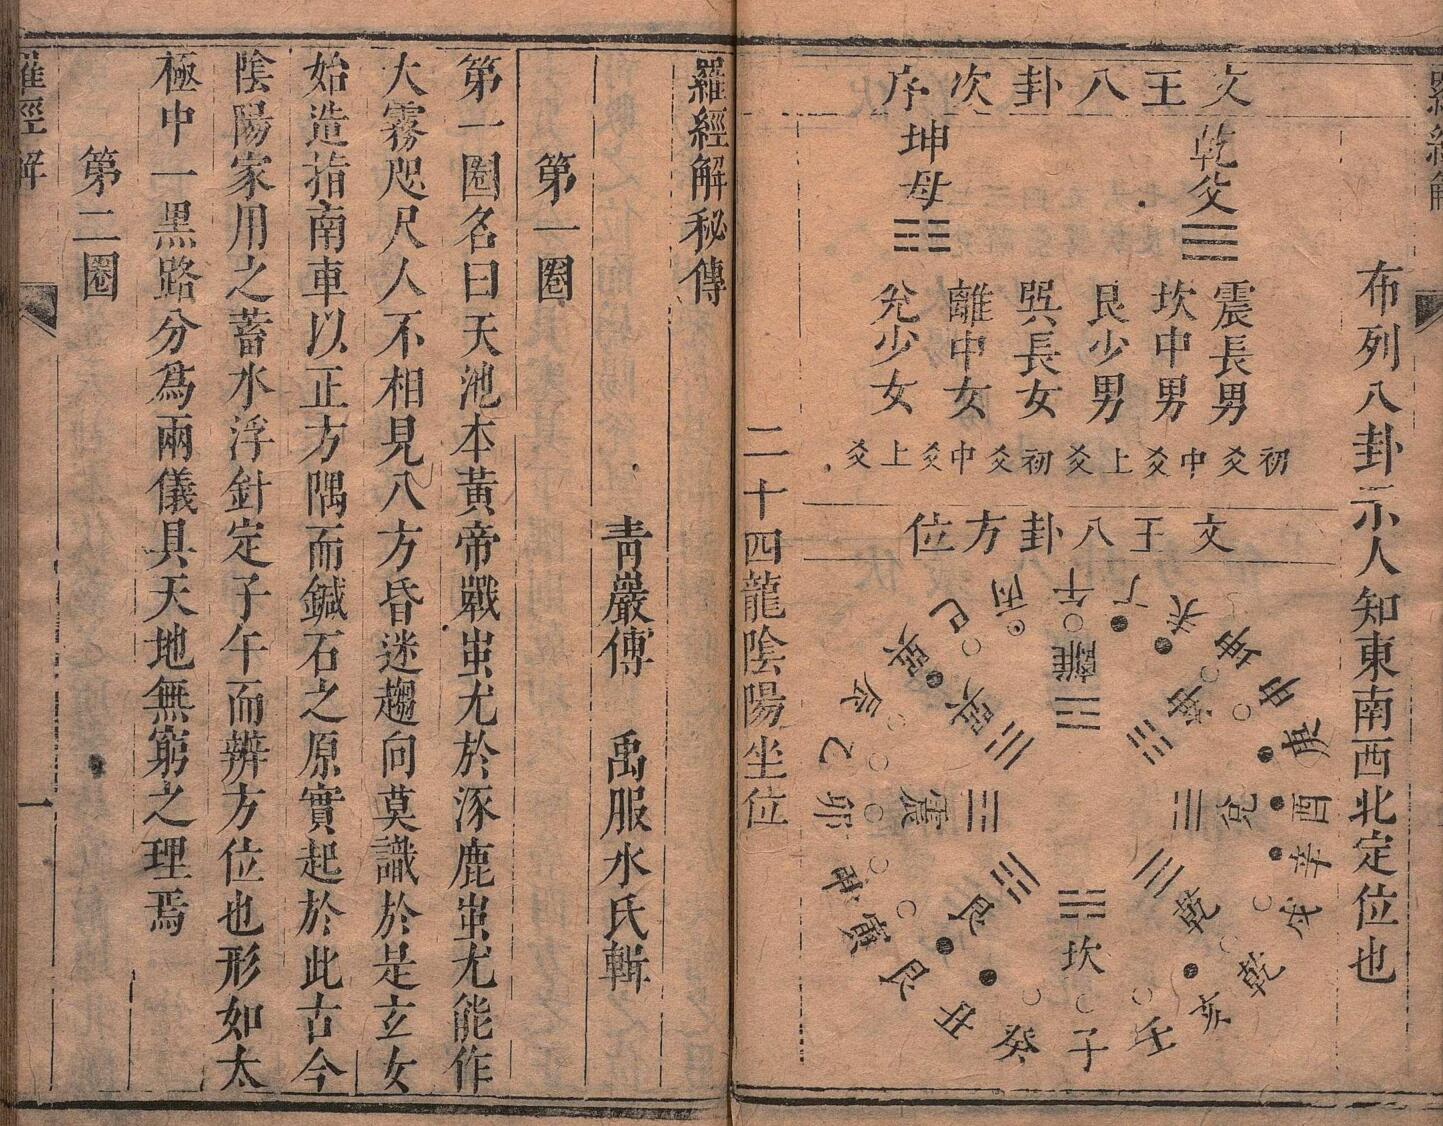 布列八卦示人知東南西北定位也
文王八卦次序
乾父
坤母
震長男
坎中男
艮少男
巽長女
離中女
兌少女
初爻中爻上爻初爻中爻上爻
文王八卦方位
離
坤
兌
乾
坎
艮
震
巽
午
丁
未
坤
申
庚
酉
辛
戌
乾
亥
壬
子
癸
丑
艮
寅
甲
卯
乙
辰
巽
巳
丙
二十四龍陰陽坐位
羅經解秘傳
青巖傳　禹服水氏輯
第一圈
第一圈名曰天池本黃帝戰蚩尤於涿鹿蚩尤能作
大霧咫尺人不相見八方昏迷趨向莫識於是玄女
始造指南車以正方隅而鍼石之原實起於此古今
陰陽家用之蓄水浮針定子午而辨方位也形如太
極中一黑路分為兩儀具天地無窮之理焉
第二圈
羅經解
一